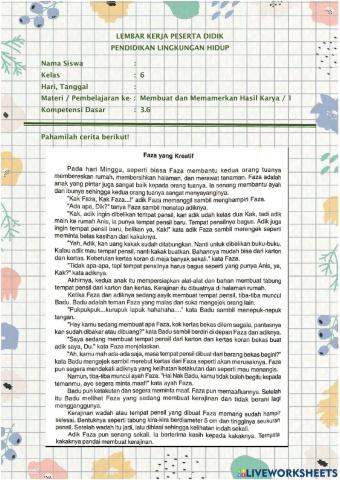 LEMBAR KERJA PESERTA DIDIK
PENDIDIKAN LINGKUNGAN HIDUP
Nama Siswa :
Kelas : 6
Hari, Tanggal :
Materi / Pembelajaran ke- : Membuat dan Memamerkan Hasil Karya / 1
Kompetensi Dasar : 3.6
Pahamilah cerita berikut!
Faza yang Kreatif
Pada hari Minggu, seperti biasa Faza membantu kedua orang tuanya
membereskan rumah, membersihkan halaman, dan merawat tanaman. Faza adalah
anak yang pintar juga sangat baik kepada orang tuanya. Ia senang membantu ayah
dan ibunya sehingga kedua orang tuanya sangat menyayanginya.
"Kak Faza, Kak Faza...!" adik Faza memanggil sambil menghampiri Faza.
"Ada apa, Dik?" tanya Faza sambil menatap adiknya.
"Kak, adik ingin dibelikan tempat pensil, kan adik udah kelas dua Kak, tadi adik
main ke rumah Anis, ia punya tempat pensil baru. Tempat pensilnya bagus. Adik juga
ingin tempat pensil baru, belikan ya, Kak!" kata adik Faza sambil merengek seperti
meminta belas kasihan dari kakaknya.
"Yah, Adik, kan uang kakak sudah ditabungkan. Nanti untuk dibelikan buku-buku.
Kalau adik mau tempat pensil, nanti kakak buatkan. Bahannya mudah bisa dari karton
dan kertas. Kebetulan kertas koran di meja banyak sekali." kata Faza.
"Tidak apa-apa, tapi tempat pensilnya harus bagus seperti yang punya Anis, ya,
Kak?" kata adiknya.
Akhirnya, kedua kakak itu mempersiapkan alat-alat dan bahan membuat tabung
tempat pensil dari karton dan kertas. Kerajinan itu dibuatnya di halaman rumah.
Ketika Faza dan adiknya sedang asyik membuat tempat pensil, tiba-tiba muncul
Badu. Badu adalah teman Faza yang malas dan suka mengejek orang lain.
"Pukpukpuk...kurupuk lapuk hahahaha...." kata Badu sambil menepuk-nepuk
tangan.
"Hey kamu sedang membuat apa Faza, kok kertas bekas dilem segala, pantasnya
kan sudah dibakar atau dibuang?" kata Badu sambil berdiri di depan Faza dan adiknya.
"Saya sedang membuat tempat pensil dari karton dan kertas koran bekas buat
adik saya, Du." kata Faza menjelaskan.
"Ah, kamu mah ada-ada saja, masa tempat pensil dibuat dari barang bekas begini?"
kata Badu mengejek sambil merebut kertas dari Faza seperti akan merusaknya. Faza
pun segera mendekati adiknya yang kelihatan ketakutan dan seperti mau menangis.
Namun, tiba-tiba muncul ayah Faza. "Hai Nak Badu, kamu tidak boleh begitu kepada
temanmu, ayo segera minta maaf!" kata ayah Faza.
Badu pun ketakutan dan segera meminta maaf. Faza pun memaafkannya. Setelah
itu Badu melihat Faza yang sedang membuat kerajinan dan tidak berani lagi
mengganggunya.
Kerajinan wadah atau tempat pensil yang dibuat Faza memang sudah hampir
selesai. Bentuknya seperti tabung kira-kira berdiameter 5 cm dan tingginya seukuran
pensil. Setelah wadah itu jadi, lalu dihiasi sehingga kelihatan indah sekali.
Adik Faza pun senang sekali. Ia berterima kasih kepada kakaknya. Ternyata
kakaknya pandai membuat kerajinan.
LIVEWORKSHEETS